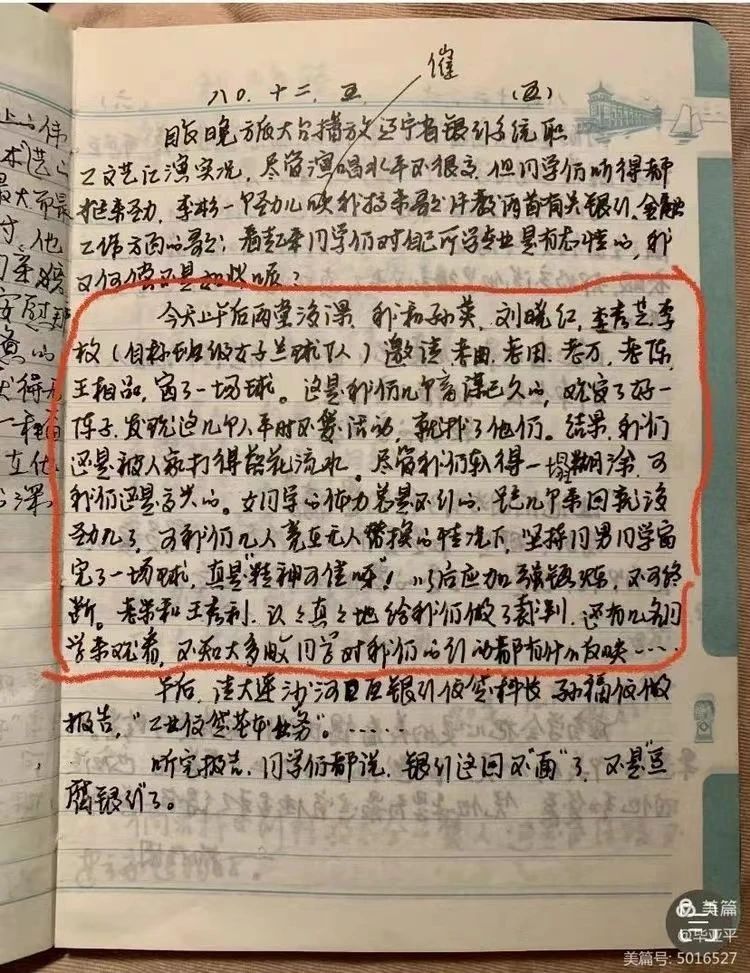 催
八〇.十二.五.　　　　(五)
晚 放大会播放辽宁省银行系统职
工文艺汇演实况,尽管演唱水平不很高,但同学们听得都
挺来劲,李杉一个劲儿 我 歌 教两首有关银行、金融
工作方面的歌;看起来同学们对自己所学专业是有感情的,我
又何尝不是如此呢?
今天上午后两堂没课,我和孙英、刘晓红、李秀芝、李
杉(自称班级女子兰球队)邀请老曲、老田、老万、老陈、
王相品,赛了一场球。这是我们几个商谋已久的,观察了好一
阵子,发现这几个人平时不爱活动,就找了他们。结果,我们
还是被人家打得落花流水。尽管我们输得一塌糊涂,可
我们还是高兴的。女同学的体力总是不行的,跑几个来回就没
劲儿了,可我们几人竟在无人替换的情况下,坚持同男同学赛
完了一场球,真是"精神可佳呀"!以后应加强锻炼,不可终
断。老荣和王秀利,认々真々地给我们做了裁判,还有几名同
学来观看,不知大多数同学对我们的行动都有什么反映……
午后,请大连沙河口区银行信贷科长孙福信做
报告,"工业信贷基本业务"。……
听完报告,同学们都说,银行这回不"面"了,不是"豆
腐银行"了。
美篇
@毕亚平
美篇号: 5016527